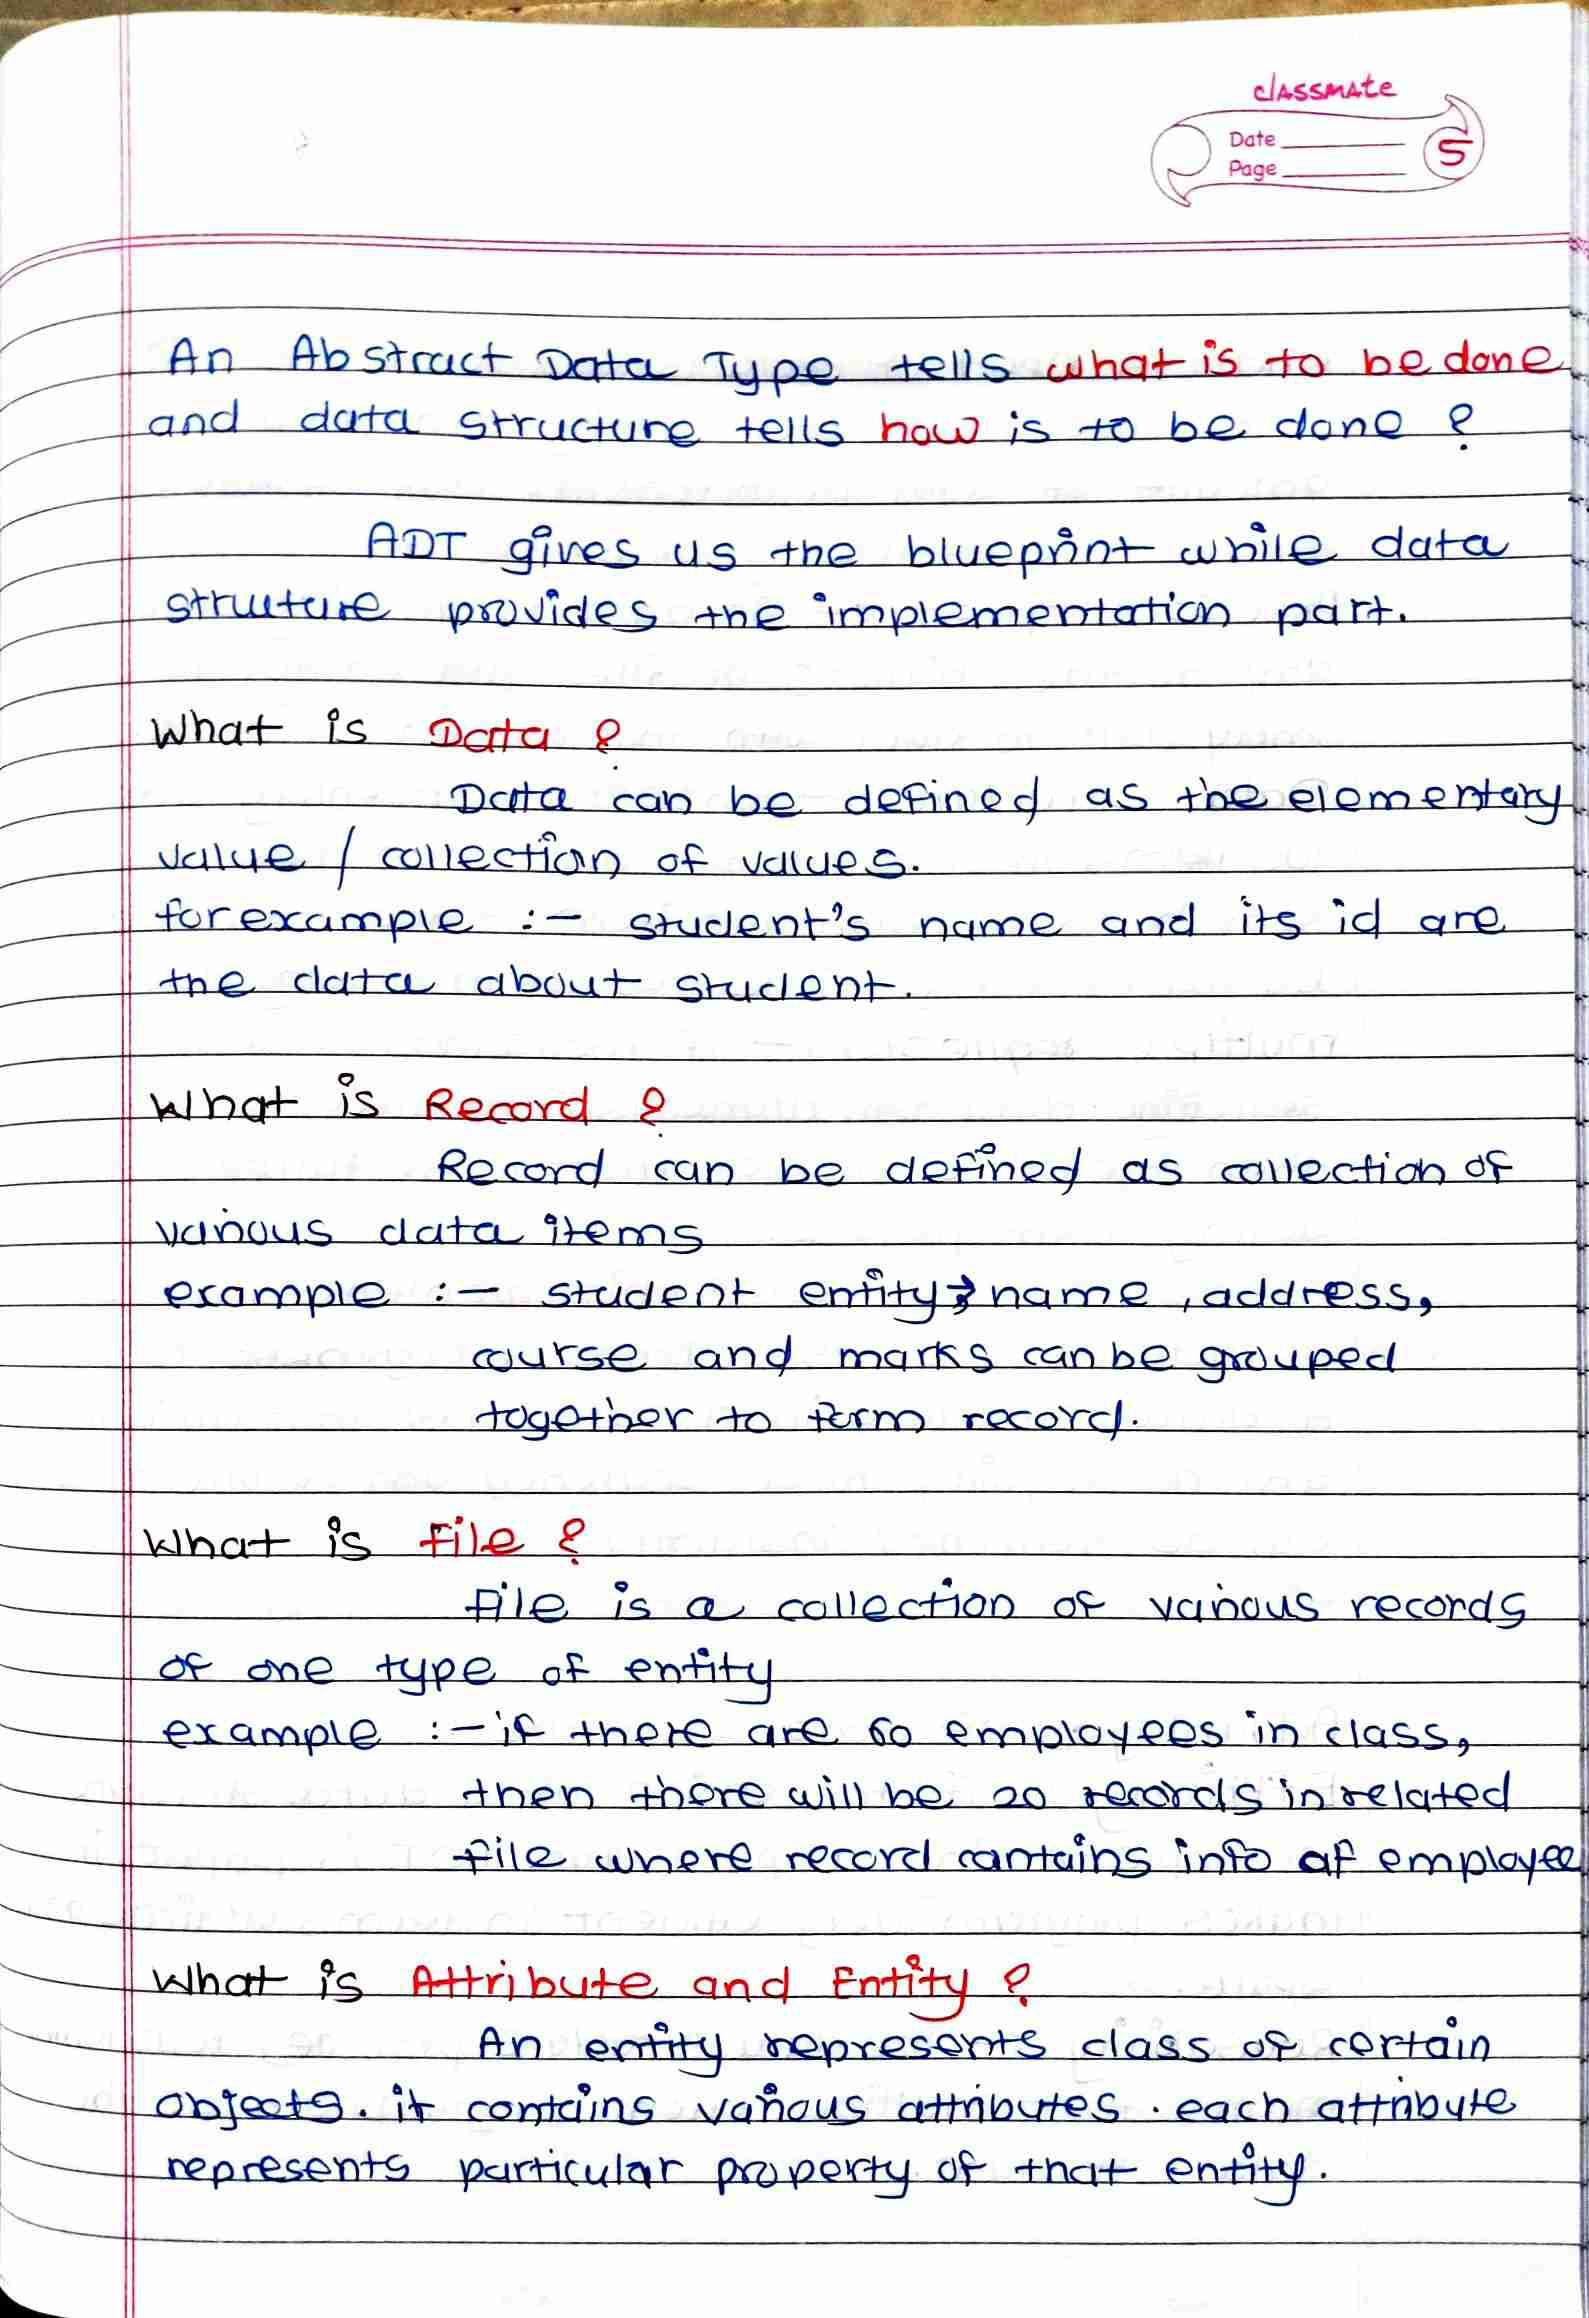 classmate
Date
Page
5
An Abstract Data Type tells what is to be done
and data structure tells how is to be done ?
ADT gives us the blueprint while data
structure provides the implementation part.
What is Data ?
Data can be defined as the elementary
value / collection of values.
for example :- student's name and its id are
the data about student.
What is Record ?
Record can be defined as collection of
various data items
example :- student entity → name, address,
course and marks can be grouped
together to form record.
What is file ?
File is a collection of various records
of one type of entity
example :- if there are 60 employees in class,
then there will be 20 records in related
file where record contains info of employee
What is Attribute and Entity ?
An entity represents class of certain
objects. it contains various attributes. each attribute
represents particular property of that entity.